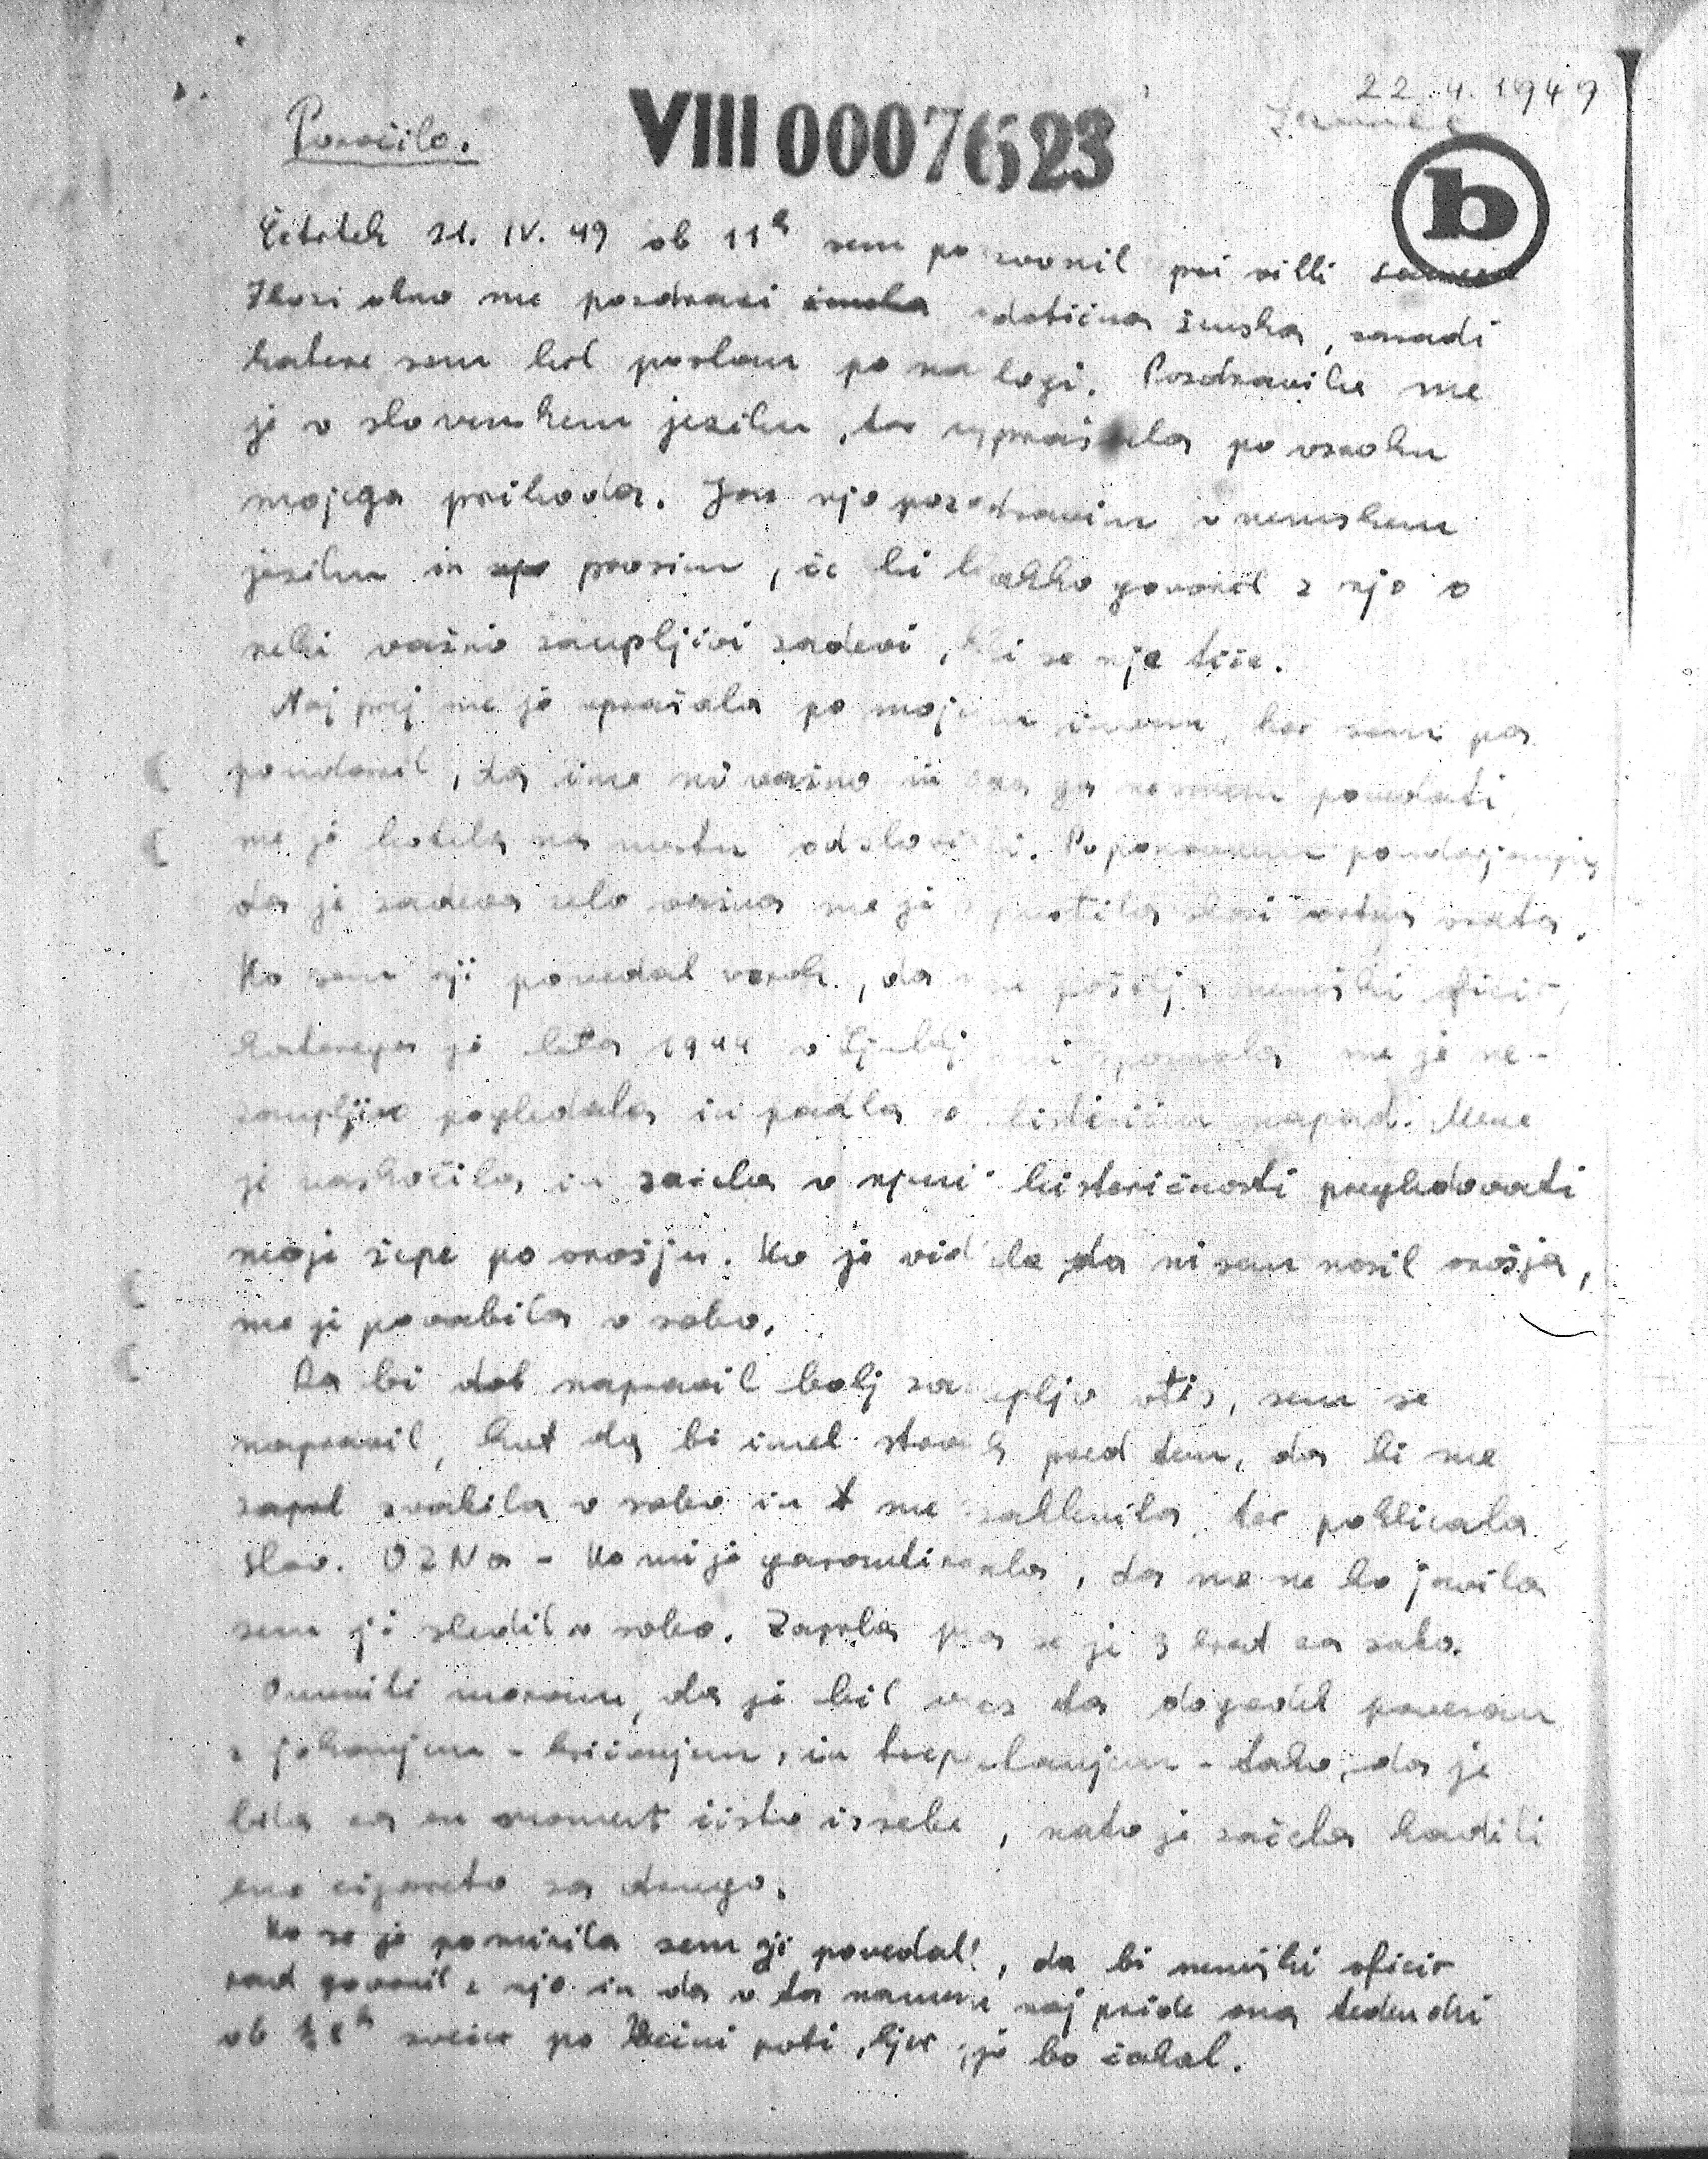 22.4.1949
Poročilo.
VIII 0007623
b
Četrtek 21. IV. 49 ob 11h sem pozvonil pri villi
Skozi okno me pozdravi dotična ženska, zaradi
katere sem bil poslan po nalogi. Pozdravila me
je v slovenskem jeziku, ter vprašala po vzroku
mojega prihoda. Jaz njo pozdravim v nemškem
jeziku in prosim, če bi lahko govoril z njo o
neki važno zaupljivi zadevi, ki se nje tiče.
Naj prej me je vprašala po mojem imenu, ker sem pa
poudaril, da ime ni važno in ga ne smem povedati,
me je hotela na mestu odsloviti. Po ponovnem poudarjanju,
da je zadeva zelo važna me je spustila skozi vrtna vrata.
Ko sem nji povedal vzrok, da me pošilja nemški oficir,
katerega je leta 1944 v Ljubljani spoznala me je ne-
zaupljivo pogledala in padla v histerični napad. Mene
je naskočila in začela v njeni histeričnosti pregledovati
moje žepe po orožju. Ko je videla da nisem nosil orožja,
me je povabila v sobo.
Da bi dal napravil bolj zaupljiv vtis, sem se
napravil, kot da bi imel strah pred tem, da bi me
zaprl zvabila v sobo in me zaklenila, ter poklicala
slov. OZNa - Ko mi je garantirala, da me ne bo javila
sem ji sledil v sobo. Zaprla pa se je 3 krat za sabo.
Omeniti moram, da je bil ves ta dogodek povezan
z jokanjem - kričanjem, in trepetanjem - tako, da je
bila za en moment čisto iz sebe, nato je začela kaditi
eno cigareto za drugo.
Ko se je pomirila sem ji povedal, da bi nemški oficir
rad govoril z njo in da v ta namen naj pride ona
ob ½ 8h zvečer po poti, kjer jo bo čakal.